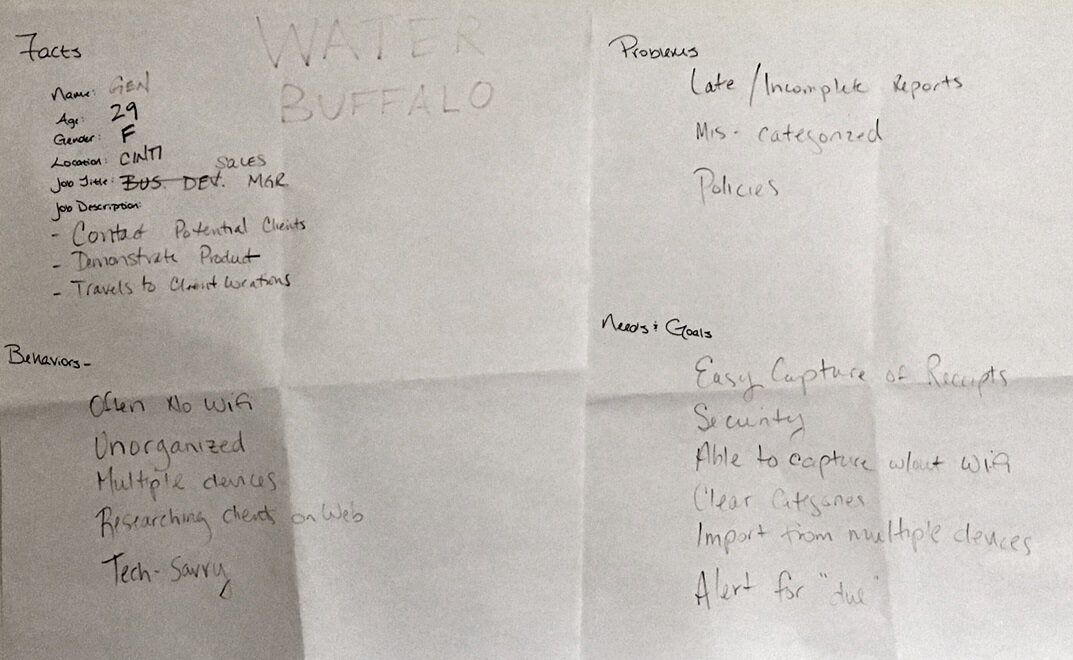 Facts
WATER
BUFFALO
Name: GEN
Age: 29
Gender: F
Location: CINTI
SALES
Job Title: BUS. DEV. MGR
Job Description:
- Contact Potential Clients
- Demonstrate Product
- Travels to Client locations
Behaviors-
Often No Wifi
Unorganized
Multiple devices
Researching clients on Web
Tech-Savvy
Problems
Late/Incomplete Reports
Mis-categorized
Policies
Needs & Goals
Easy Capture of Receipts
Security
Able to capture w/out Wifi
Clear Categories
Import from multiple devices
Alert for "due"